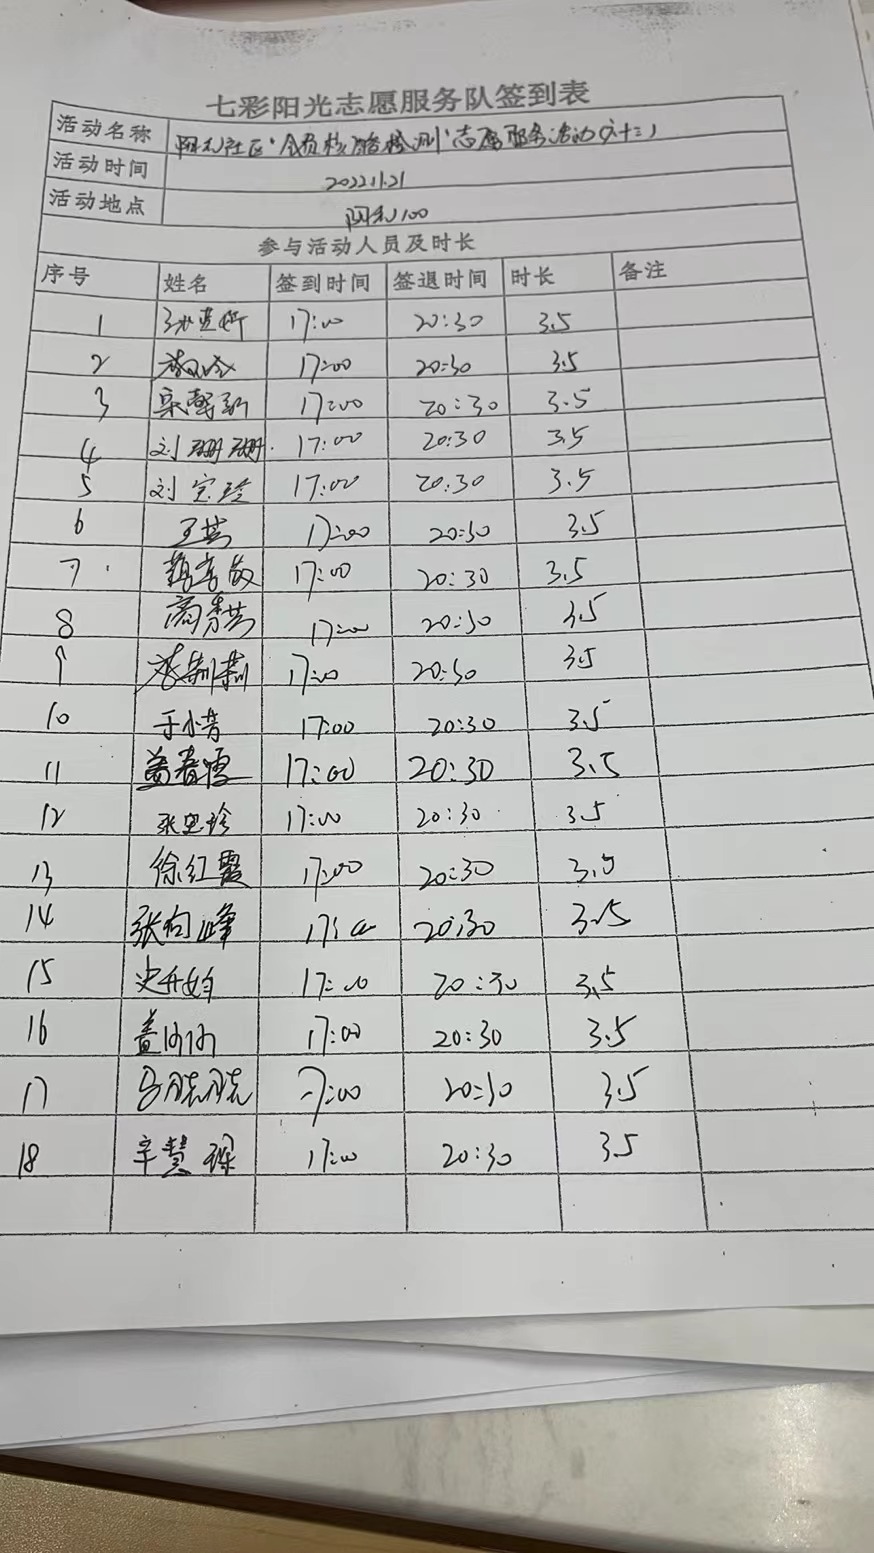 七彩阳光志愿服务队签到表
活动名称 阳光社区"全员核酸检测"志愿服务活动(六十三)
活动时间 2022.11.21
活动地点 阳光100
参与活动人员及时长
序号 姓名 签到时间 签退时间 时长 备注
1 17:00 20:30 3.5
2 17:00 20:30 3.5
3 17:00 20:30 3.5
4 刘珊珊 17:00 20:30 3.5
5 刘宝玲 17:00 20:30 3.5
6 王芸 17:00 20:30 3.5
7 17:00 20:30 3.5
8 高秀芸 17:00 20:30 3.5
9 17:00 20:30 3.5
10 于小芳 17:00 20:30 3.5
11 盖春霞 17:00 20:30 3.5
12 张思玲 17:00 20:30 3.5
13 徐红霞 17:00 20:30 3.5
14 张向峰 17:00 20:30 3.5
15 史丹妁 17:00 20:30 3.5
16 17:00 20:30 3.5
17 马晓晓 17:00 20:30 3.5
18 辛慧琛 17:00 20:30 3.5